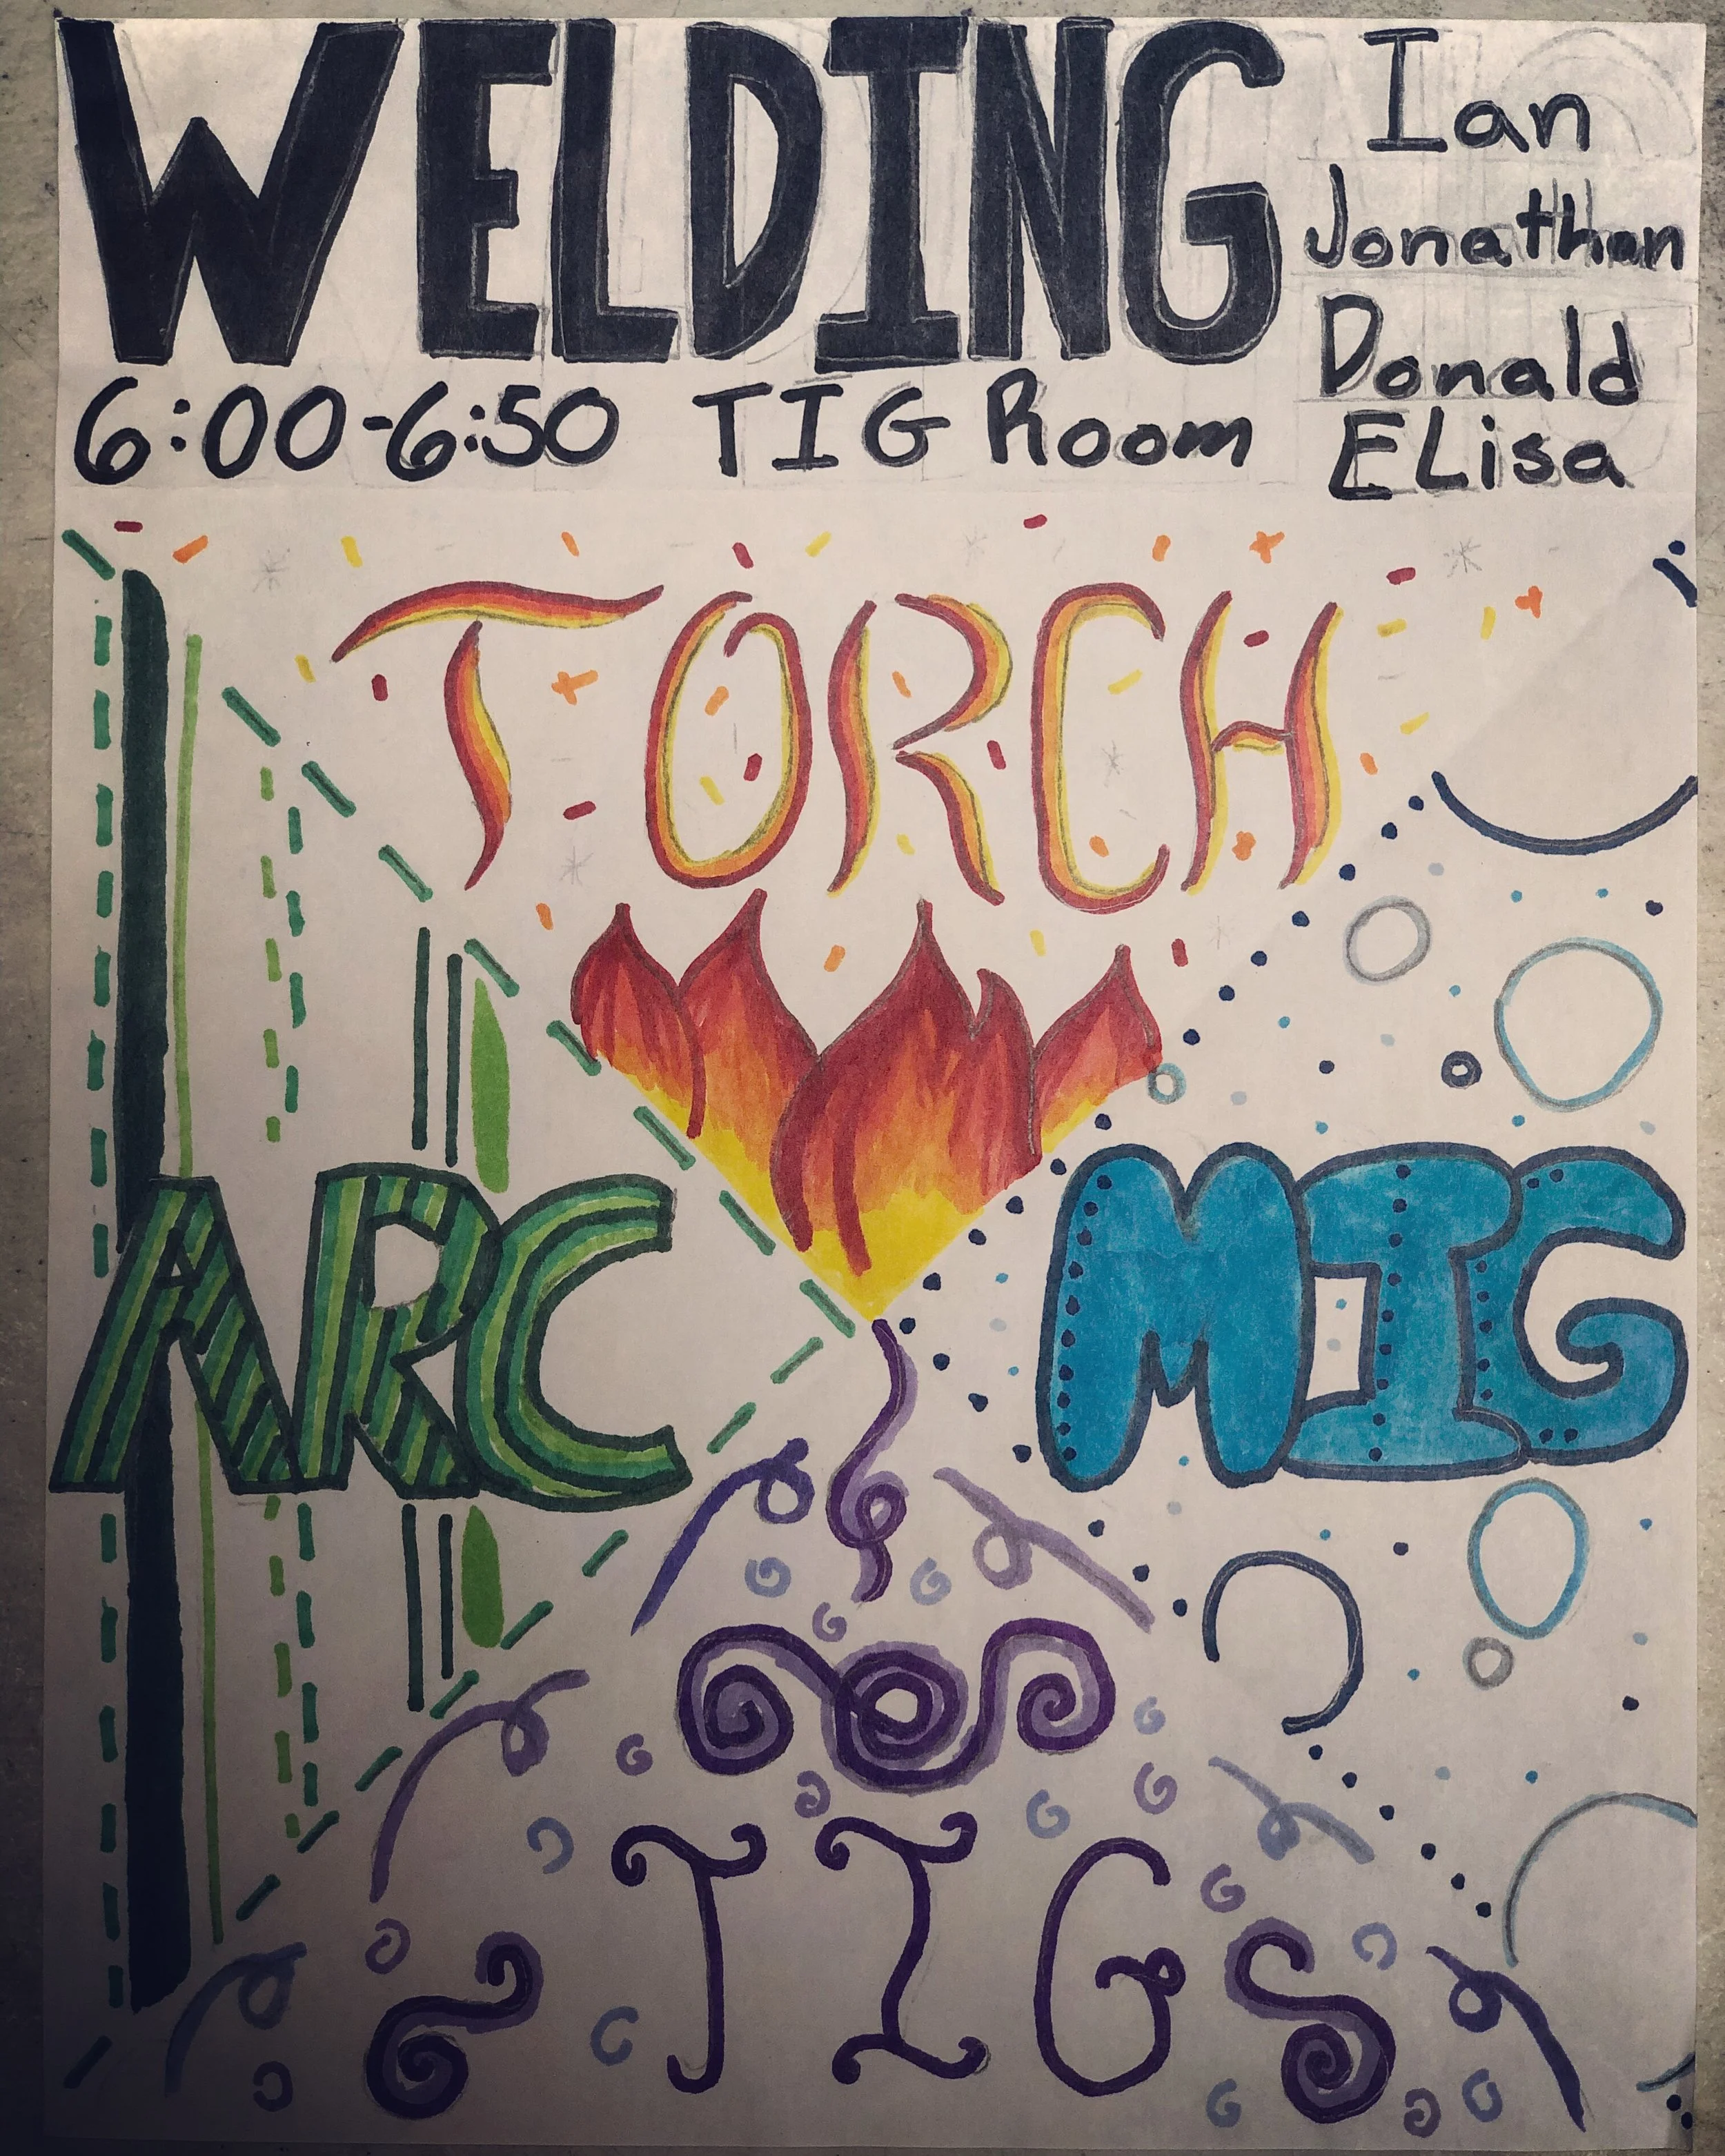 WELDING
Ian
Jonathan
Donald
ELisa
6:00-6:50 TIG Room
TORCH
ARC
MIG
TIG